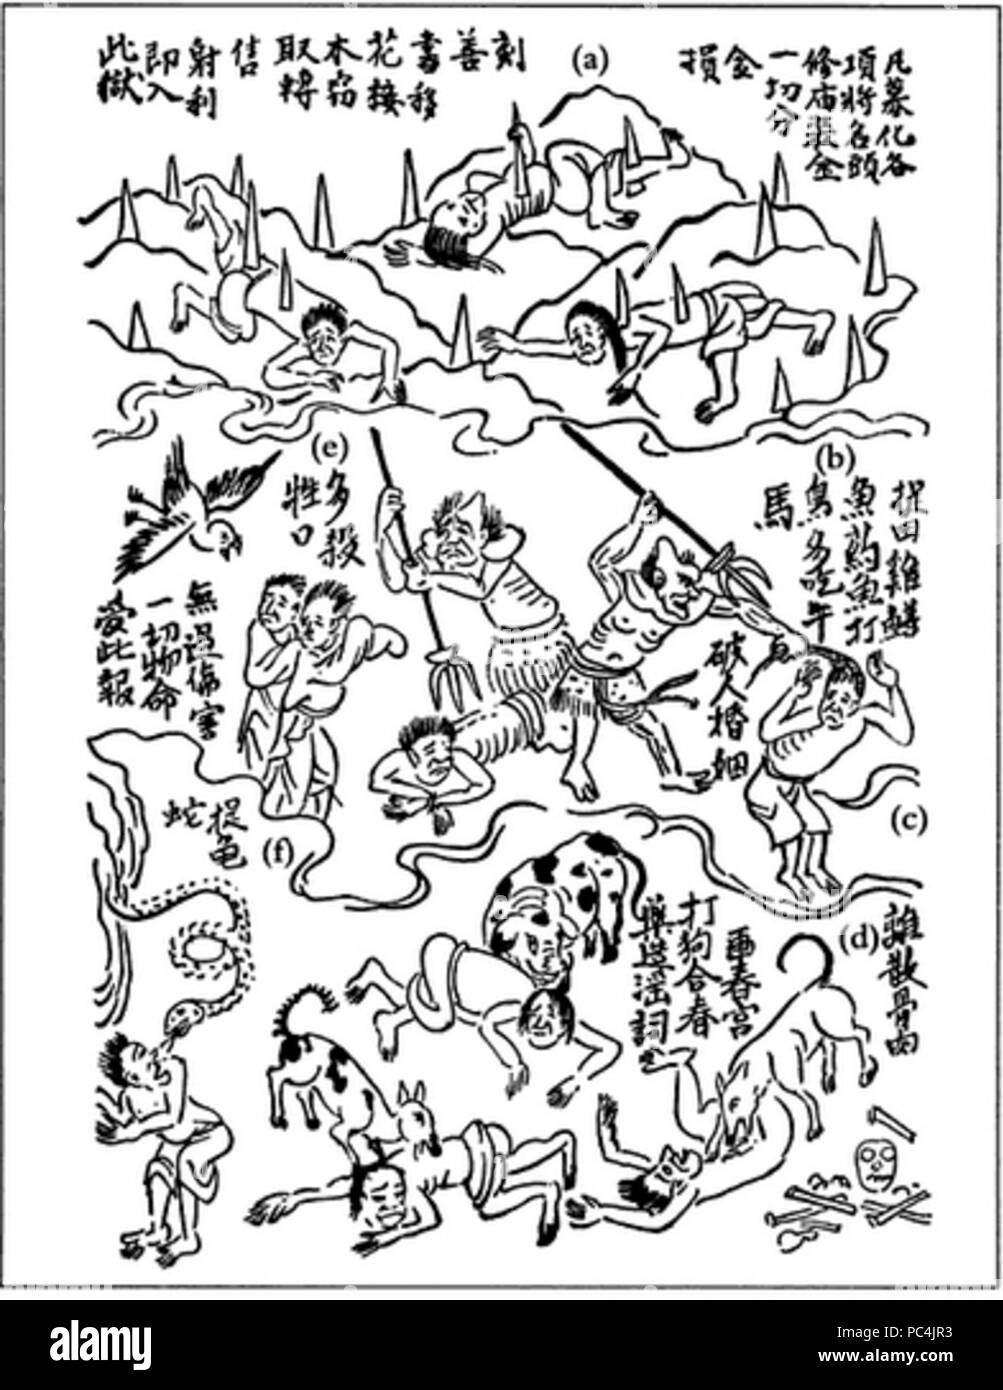 凡募化各
項將名頭
修庙裝金
一切分
金
損
(a)
刻
善
書移
花接
木窃
取轉
售
射利
即入
此獄
(b)
捉田雞鱔
魚釣魚打
鳥多吃牛
馬
破人婚姻
(c)
(e)
多殺
牲口
無過傷害
一切物命
受此報
(d)
離散骨肉
画春宮
打狗合春
藥造淫詞
(f)
捉龟
蛇
alamy
Image ID: PC4JR3
www.alamy.com